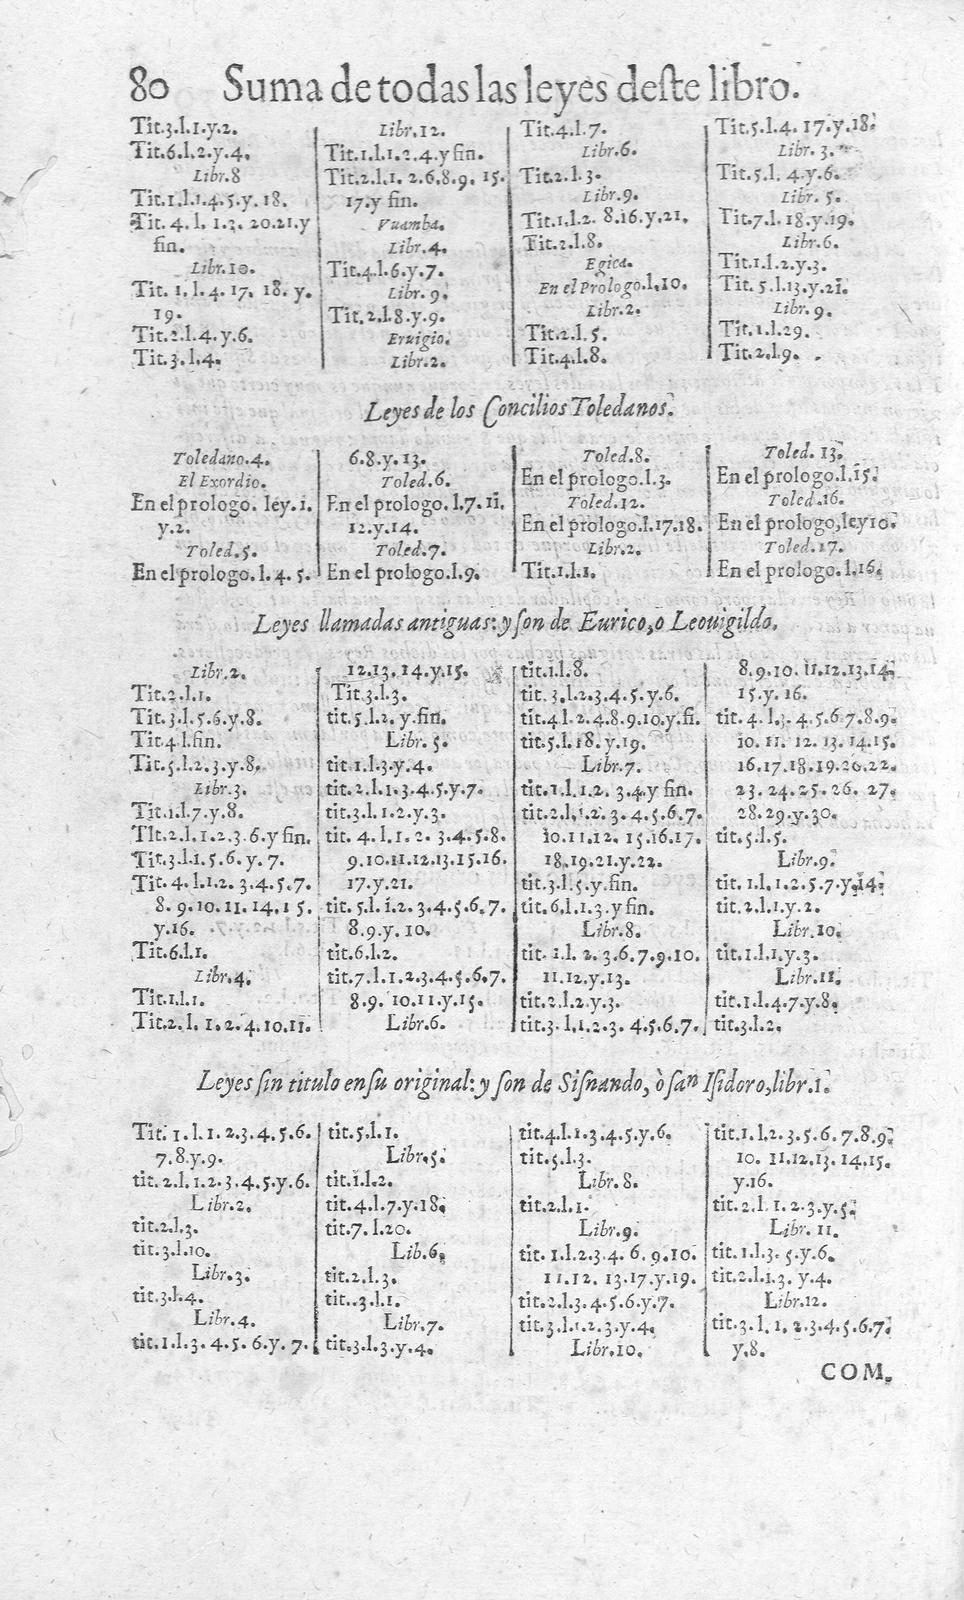 80 Suma de todas las leyes deste libro.
Tit.3.l.1.y.2.
Tit.6.l.2.y.4.
Libr.8
Tit.1.l.1.4.5.y.18.
Tit.4.l.1.3.20.21.y
fin.
Libr.10.
Tit.1.l.4.17.18.y.
19.
Tit.2.l.4.y.6.
Tit.3.l.4.
Libr.12.
Tit.1.l.1.2.4.y fin.
Tit.2.l.1.2.6.8.9.15.
17.y fin.
Vuamba.
Libr.4.
Tit.4.l.6.y.7.
Libr.9.
Tit.2.l.8.y.9.
Eruigio.
Libr.2.
Tit.4.l.7.
Libr.6.
Tit.2.l.3.
Libr.9.
Tit.1.l.2.8.16.y.21.
Tit.2.l.8.
Egica.
En el Prologo.l.10.
Libr.2.
Tit.2.l.5.
Tit.4.l.8.
Tit.5.l.4.17.y.18.
Libr.3.
Tit.5.l.4.y.6.
Libr.5.
Tit.7.l.18.y.19.
Libr.6.
Tit.1.l.2.y.3.
Tit.5.l.13.y.21.
Libr.9.
Tit.1.l.29.
Tit.2.l.9.
Leyes de los Concilios Toledanos.
Toledano.4.
El Exordio.
En el prologo. ley.1.
y.2.
Toled.5.
En el prologo.l.4.5.
6.8.y.13.
Toled.6.
En el prologo.l.7.11.
12.y.14.
Toled.7.
En el prologo.l.9.
Toled.8.
En el prologo.l.3.
Toled.12.
En el prologo.l.17.18.
Libr.2.
Tit.1.l.1.
Toled.13.
En el prologo.l.15.
Toled.16.
En el prologo,ley10.
Toled.17.
En el prologo.l.16.
Leyes llamadas antiguas: y son de Eurico, o Leouigildo.
Libr.2.
Tit.2.l.1.
Tit.3.l.5.6.y.8.
Tit.4.l.fin.
Tit.5.l.2.3.y.8.
Libr.3.
Tit.1.l.7.y.8.
TIt.2.l.1.2.3.6.y fin.
Tit.3.l.1.5.6.y.7.
Tit.4.l.1.2.3.4.5.7.
8.9.10.11.14.15.
y.16.
Tit.6.l.1.
Libr.4.
Tit.1.l.1.
Tit.2.l.1.2.4.10.11.
12.13.14.y.15.
Tit.3.l.3.
tit.5.l.2.y.fin.
Libr.5.
tit.1.l.3.y.4.
tit.2.l.1.3.4.5.y.7.
tit.3.l.1.2.y.3.
tit.4.l.1.2.3.4.5.8.
9.10.11.12.13.15.16.
17.y.21.
tit.5.l.1.2.3.4.5.6.7.
8.9.y.10.
tit.6.l.2.
tit.7.l.1.2.3.4.5.6.7.
8.9.10.11.y.15.
Libr.6.
tit.1.l.8.
tit.3.l.2.3.4.5.y.6.
tit.4.l.2.4.8.9.10.y.fi.
tit.5.l.18.y.19.
Libr.7.
tit.1.l.1.2.3.4.y fin.
tit.2.l.1.2.3.4.5.6.7.
10.11.12.15.16.17.
18.19.21.y.22.
tit.3.l.5.y.fin.
tit.6.l.1.3.y fin.
Libr.8.
tit.1.l.2.3.6.7.9.10.
11.12.y.13.
tit.2.l.2.y.3.
tit.3.l.1.2.3.4.5.6.7.
8.9.10.11.12.13.14.
15.y.16.
tit.4.l.3.4.5.6.7.8.9.
10.11.12.13.14.15.
16.17.18.19.20.22.
23.24.25.26.27.
28.29.y.30.
tit.5.l.5.
Libr.9.
tit.1.l.1.2.5.7.y.14.
tit.2.l.1.y.2.
Libr.10.
tit.1.l.1.y.3.
Libr.11.
tit.1.l.4.7.y.8.
tit.3.l.2.
Leyes sin titulo en su original: y son de Sisnando, ò san Isidoro, libr.1.
Tit.1.l.1.2.3.4.5.6.
7.8.y.9.
tit.2.l.1.2.3.4.5.y.6.
Libr.2.
tit.2.l.3.
tit.3.l.10.
Libr.3.
tit.3.l.4.
Libr.4.
tit.1.l.3.4.5.6.y.7.
tit.5.l.1.
Libr.5.
tit.1.l.2.
tit.4.l.7.y.18.
tit.7.l.20.
Lib.6.
tit.2.l.3.
tit..3.l.1.
Libr.7.
tit.3.l.3.y.4.
tit.4.l.1.3.4.5.y.6.
tit.5.l.3.
Libr.8.
tit.2.l.1.
Libr.9.
tit.1.l.2.3.4.6.9.10.
11.12.13.17.y.19.
tit.2.l.3.4.5.6.y.7.
tit.3.l.1.2.3.y.4.
Libr.10.
tit.1.l.2.3.5.6.7.8.9.
10.11.12.13.14.15.
y.16.
tit.2.l.1.2.3.y.5.
Libr.11.
tit.1.l.3.5.y.6.
tit.2.l.1.3.y.4.
Libr.12.
tit.3.l.1.2.3.4.5.6.7.
y.8.
COM.